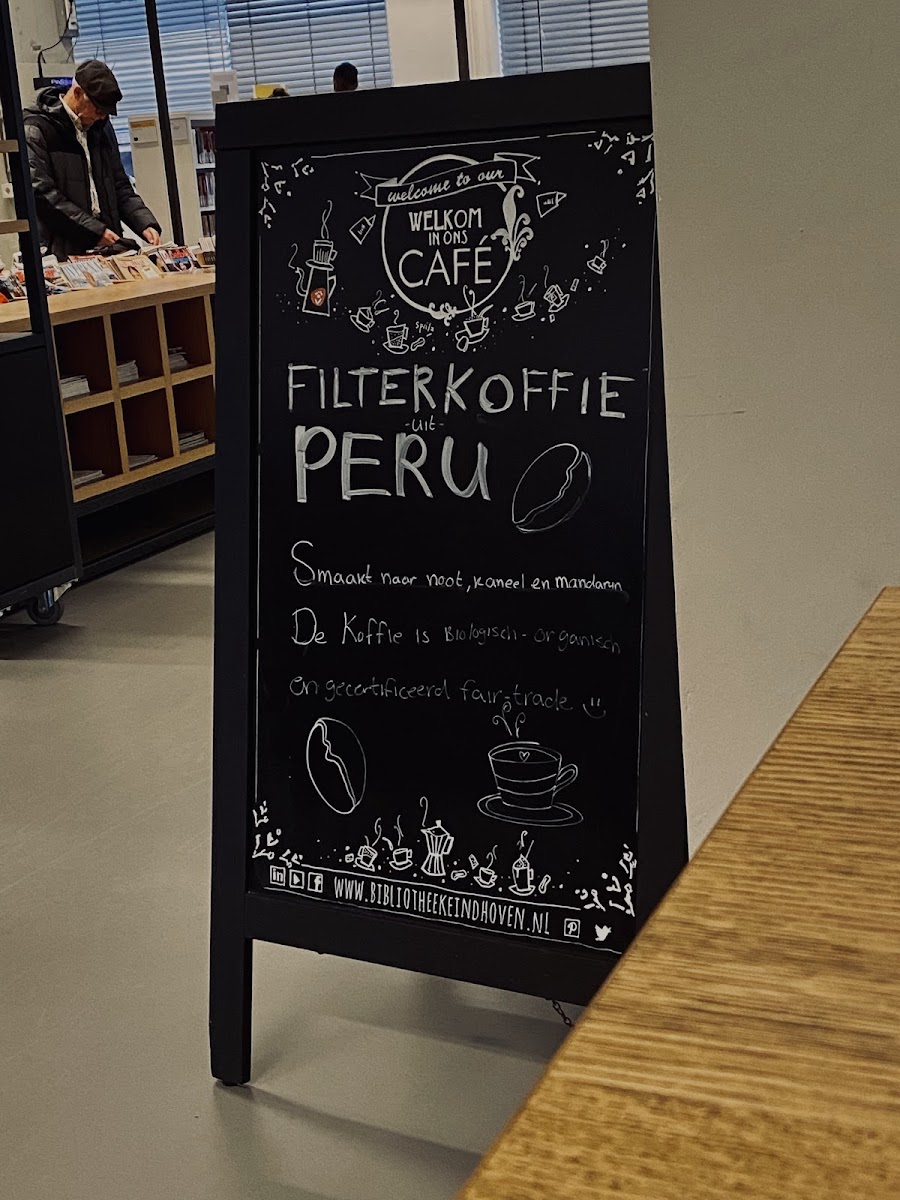 welcome to our
WELKOM
IN ONS
CAFÉ
FILTERKOFFIE
-uit-
PERU
Smaakt naar noot, kaneel en mandarijn
De Koffie is Biologisch - organisch
en gecertificeerd fair-trade
WWW.BIBLIOTHEEKEINDHOVEN.NL